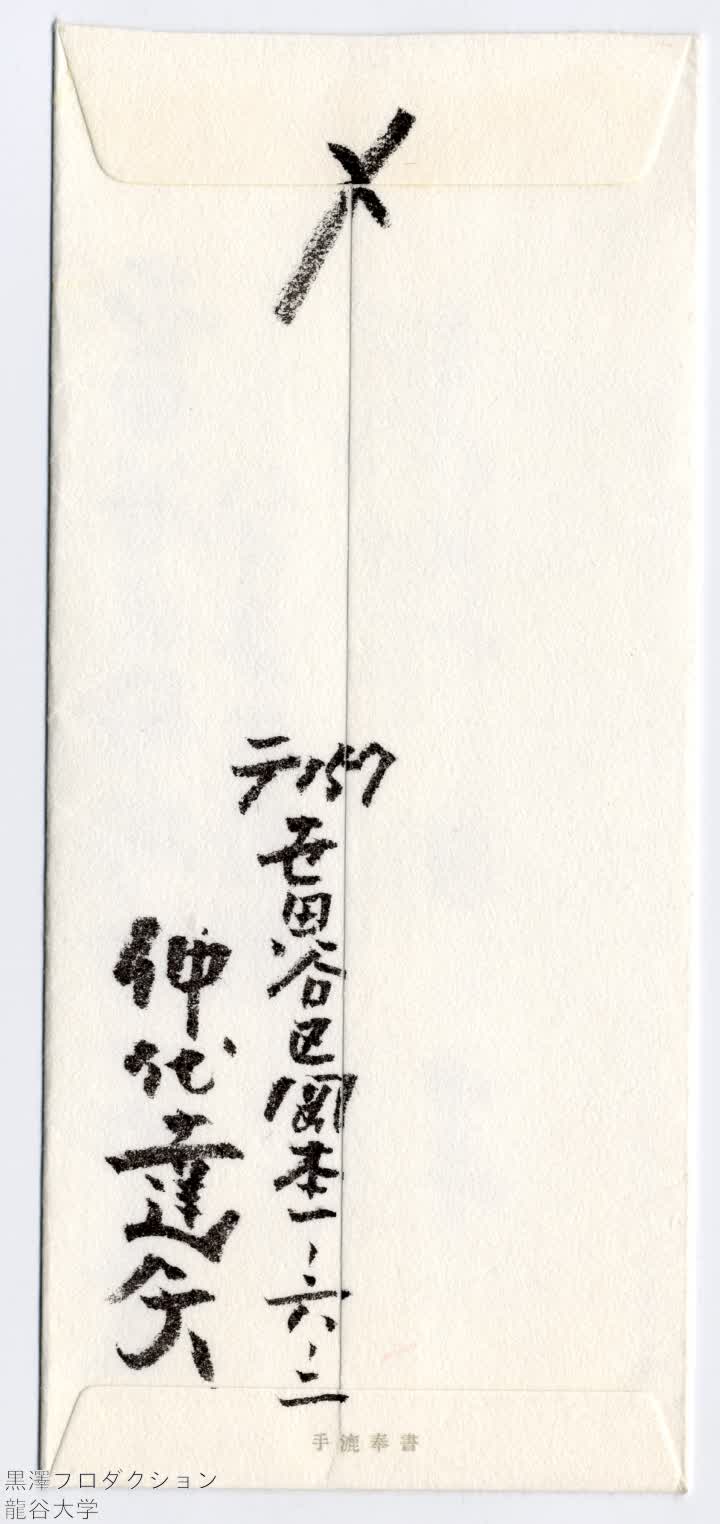 〆
〒157
世田谷区岡本一-六-二
仲代達矢
手漉奉書
黒澤プロダクション
龍谷大学